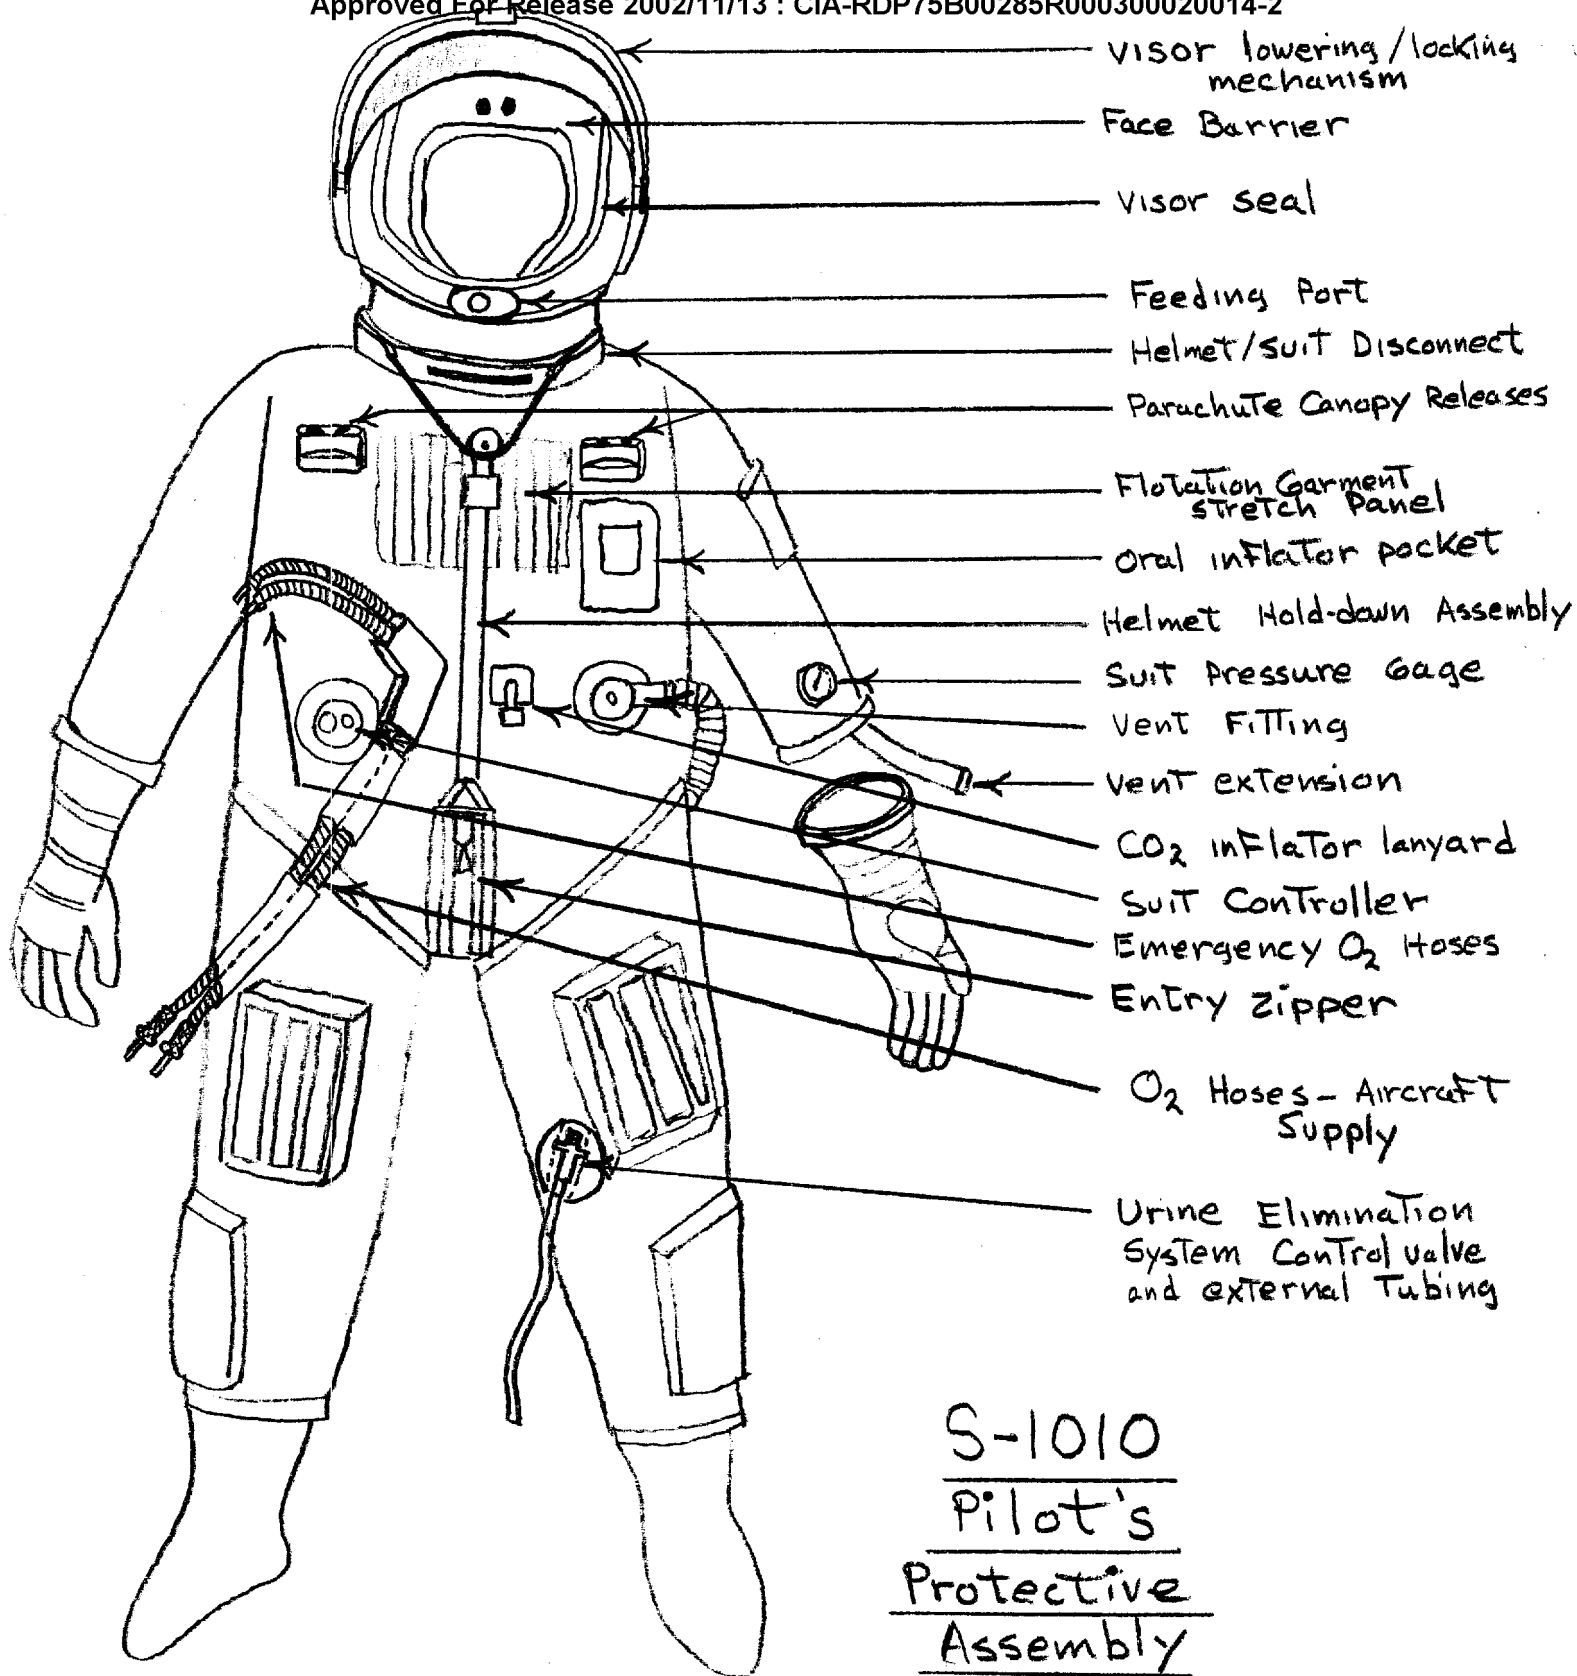 Approved For Release 2002/11/13 : CIA-RDP75B00285R000300020014-2
Visor lowering/locking
mechanism
Face Barrier
Visor seal
Feeding Port
Helmet/Suit Disconnect
Parachute Canopy Releases
Flotation Garment
stretch Panel
oral inflator pocket
Helmet Hold-down Assembly
Suit Pressure Gage
Vent Fitting
vent extension
CO₂ inflator lanyard
Suit Controller
Emergency O₂ Hoses
Entry Zipper
O₂ Hoses - Aircraft
Supply
Urine Elimination
System Control valve
and external Tubing
S-1010
Pilot's
Protective
Assembly